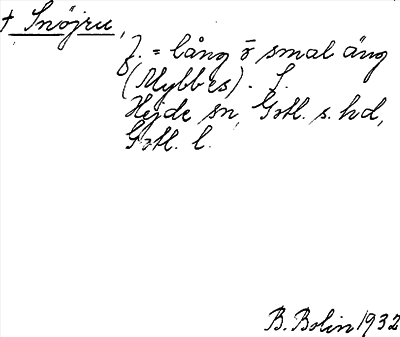 † Snöjru,
f. = lång o smal äng
(Mybbes). f.
Hejde sn, Gotl. s. hd,
Gotl. l.
B. Bolin 1932